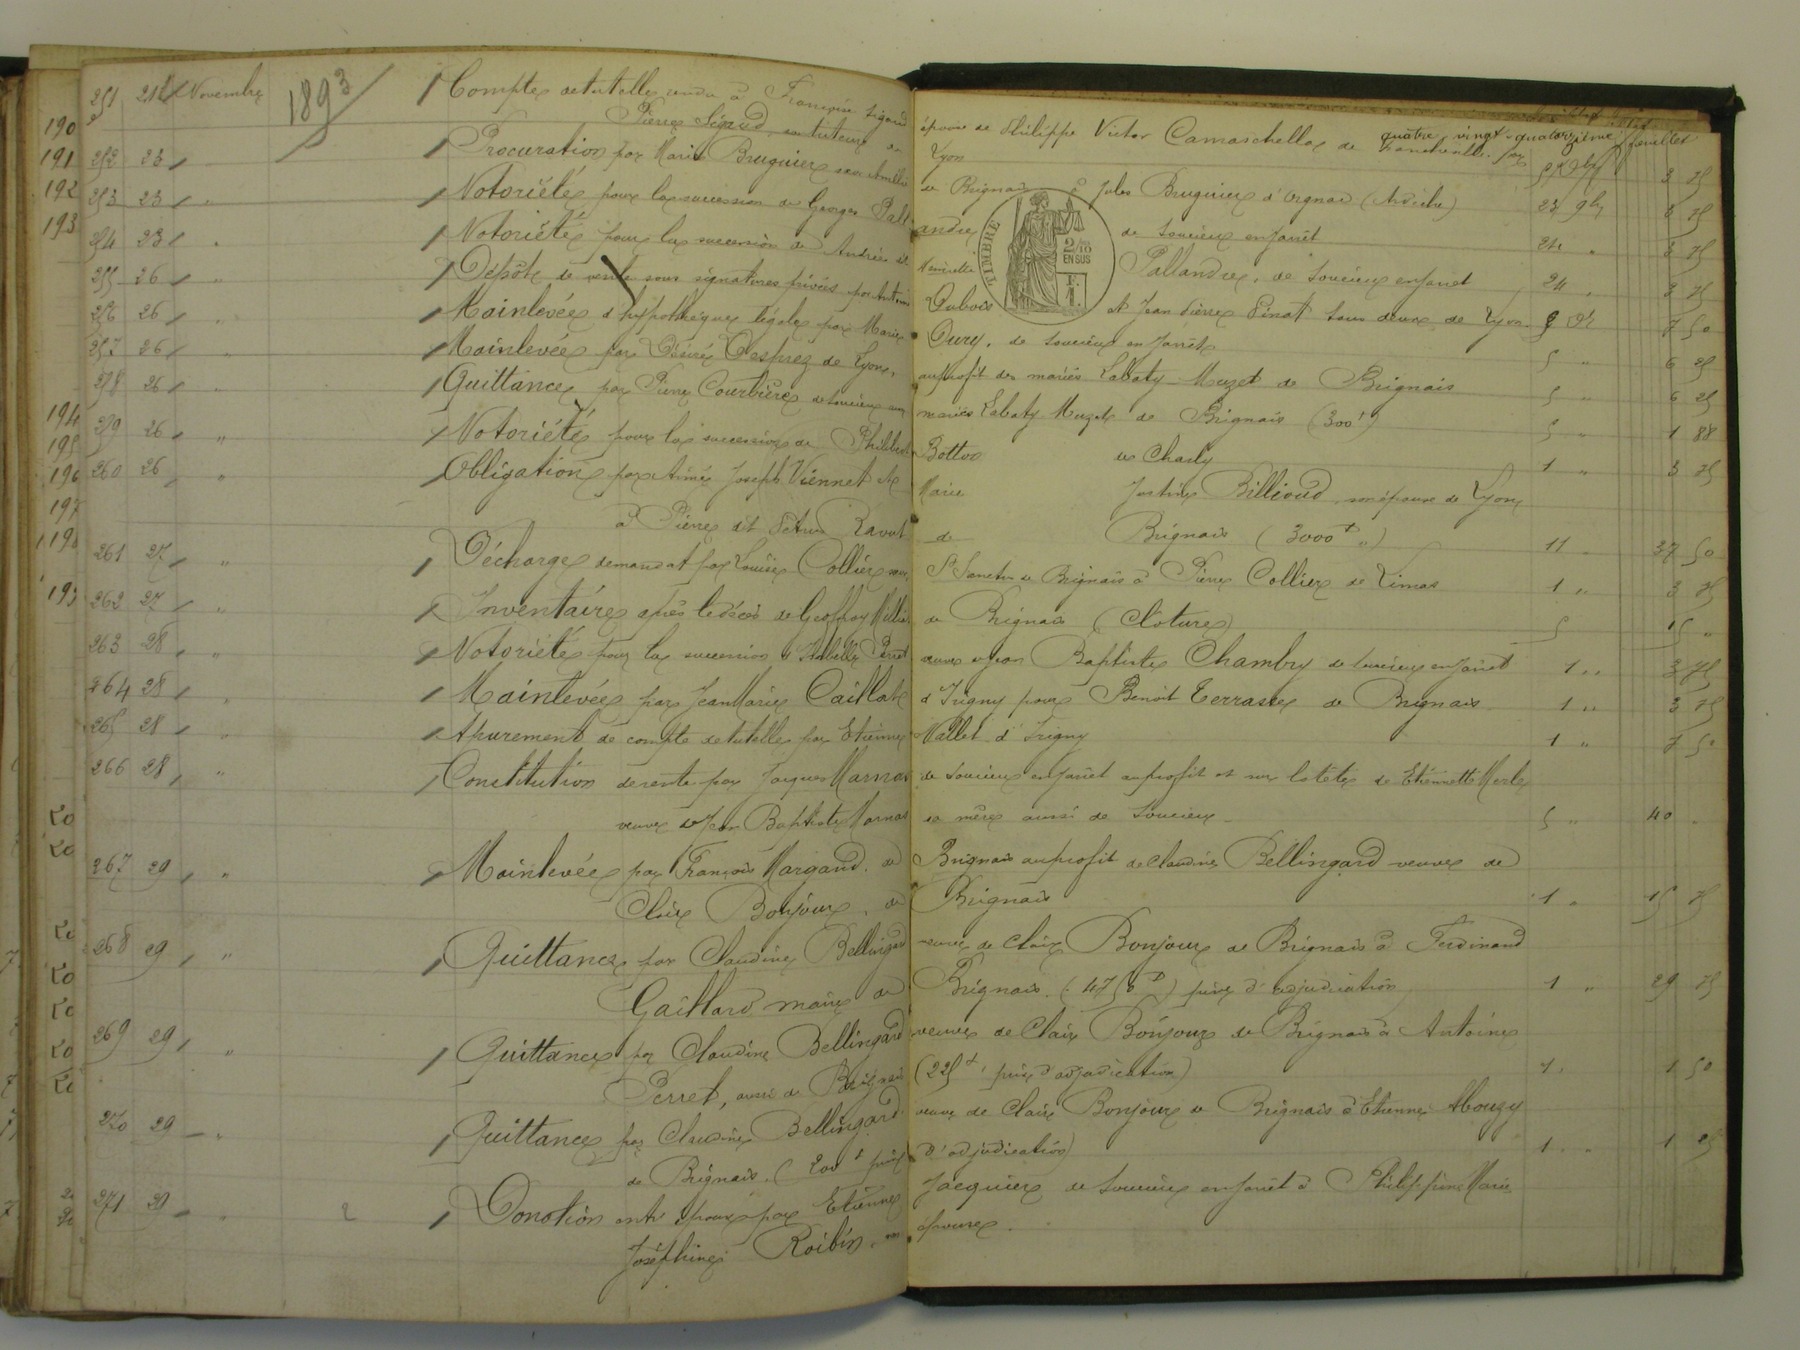 quatre vingt quatorzième feuillet
251 21 Novembre 1893 Compte de tutelle rendu à Françoise Sigaud épouse de Philippe Victor Camaschella de Francheville, par
Pierre Sigaud son tuteur de Lyon 3 75
252 23 " Procuration par Marie Bruguier de Brignais à Jules Bruguier d'Orgnac (Ardèche) 23 9bre 3 75
253 23 " Notoriété pour la succession de Georges Pallandre de Soucieu en Jarret 24 " 3 75
254 23 " Notoriété pour la succession de Andrée dit Henriette Pallandre, de Soucieu en Jarret 24 " 3 75
255 26 " Dépôt de vente sous signatures privées par Antoine Dubois et Jean Pierre Pinat tous deux de Lyon 7 50
256 26 " Mainlevée d'hypothèque légale par Marie Oury, de Soucieu en Jarret 5 " 6 25
257 26 " Mainlevée par Désiré Desprez de Lyon, au profit des mariés Labaty-Muzet de Brignais 5 " 6 25
258 26 " Quittance par Pierre Courbière de Soucieu aux mariés Labaty Muzet de Brignais (300f) 5 " 1 88
259 26 " Notoriété pour la succession de Philibert Botton de Charly 1 " 3 75
260 26 " Obligation par Aimé Joseph Viennet et Marie Justine Billioud son épouse de Lyon
à Pierre dit Pétrus Ravat de Brignais (3000f ") 11 " 37 50
261 27 " Décharge de mandat par Louise Collier de Brignais à Pierre Collier de Limas 1 " 3 75
262 27 " Inventaire après le décès de Geoffray de Brignais (Cloture) 5 15 "
263 28 " Notoriété pour la succession d'Isabelle Perret veuve de Jean Baptiste Chambry de Soucieu en Jarret 1 " 3 75
264 28 " Mainlevée par Jean Marie Caillat d'Irigny pour Benoit Terrasse de Brignais 1 " 3 75
265 28 " Apurement de compte de tutelle par Etienne Vallet d'Irigny 1 " 7 50
266 28 " Constitution de rente par Jacques Marnas de Soucieu en Jarret au profit et sur la tête de Etiennette Merle
veuve de Jean Baptiste Marnas sa mère aussi de Soucieu 5 " 40
267 29 " Mainlevée par François Margand, de Brignais au profit de Claudine Bellingard veuve de
Claix Bonjour, de Brignais 1 " 15 75
268 29 " Quittance par Claudine Bellingard veuve de Claix Bonjour de Brignais à Ferdinand
Gaillard maire de Brignais. prix d'adjudication 1 " 29 75
269 29 " Quittance par Claudine Bellingard veuve de Claix Bonjour de Brignais à Antoine
Perret, aussi de Brignais (225f prix d'adjudication) 1 " 1 50
270 29 " Quittance par Claudine Bellingard veuve de Claix Bonjour de Brignais à Etienne Mouzy
de Brignais. (200f prix d'adjudication) 1 " 1 25
271 29 " Donation entre époux par Etienne Jacquier de Soucieu en Jarret à Philippine Marie
Joséphine Roibin, son épouse.
190
191
192
193
194
195
196
197
198
199
TIMBRE
2/10
EN SUS
1F.